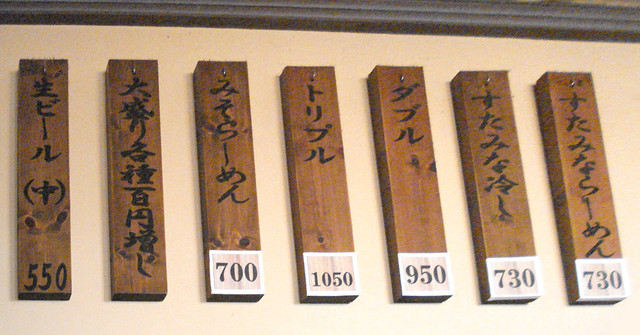 すたみならーめん
730
すたみな冷し
730
ダブル
950
トリプル
1050
みそらーめん
700
大盛り各種百円増し
生ビール(中)
550